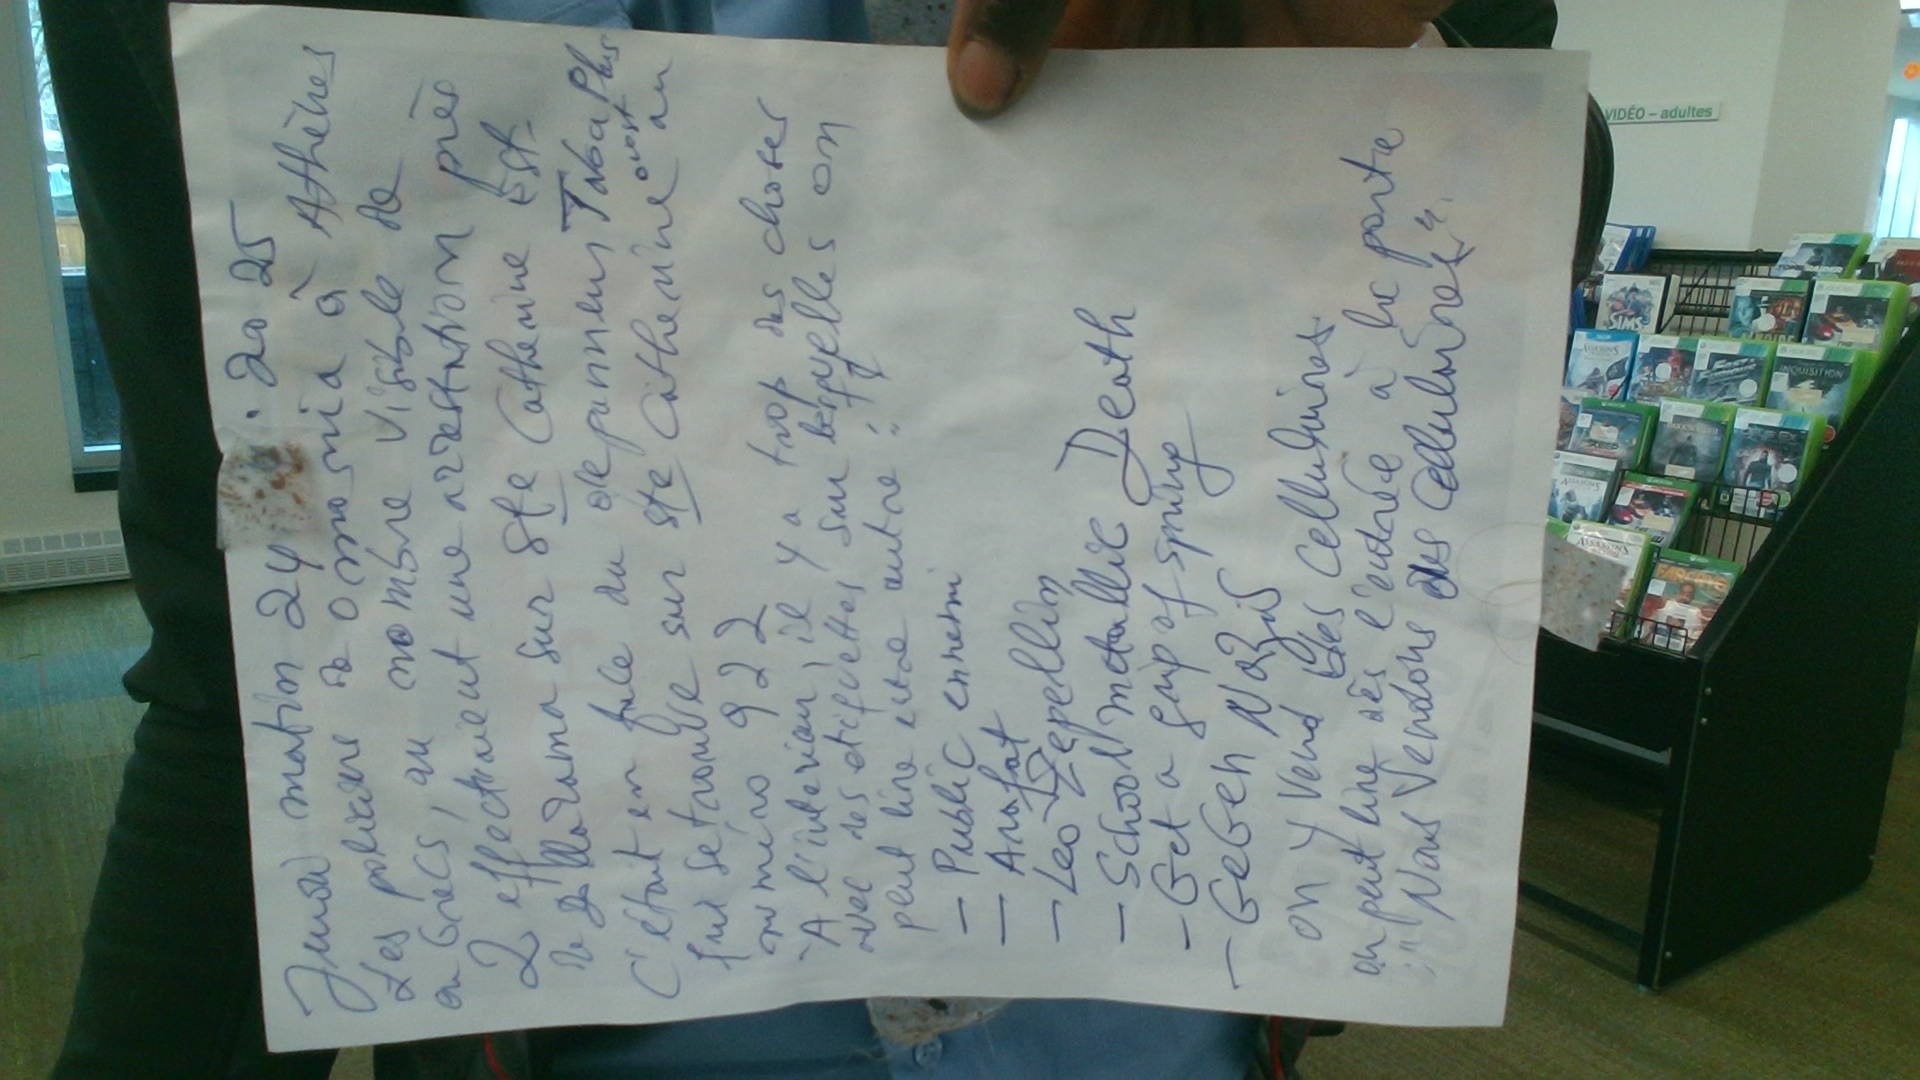 Jeudi matin 24 . 2025
Les policiers de Omosnia à Athènes
en Grèce, au nombre visible de
2 effectuaient une arrestation près
de Dollarama sur Ste Catherine Est.
C'était en face du depanneur Taba Plus
qui se trouve sur Ste Catherine ouest au
numéro 922
"A l'intérieur, il y a trop des choses
avec des etiquettes sur lesquelles on
peut lire entre autre "
- Public ennemi
- Arafat
- Leo Zepellin
- School metallic Death
- Get a grip of spring
- GeGen Nazis
on y vend des Cellulaires.
on peut lire dès l'entrée à la porte
: " Nous Vendons des Cellulaires".
VIDÉO – adultes
SIMS
INQUISITION